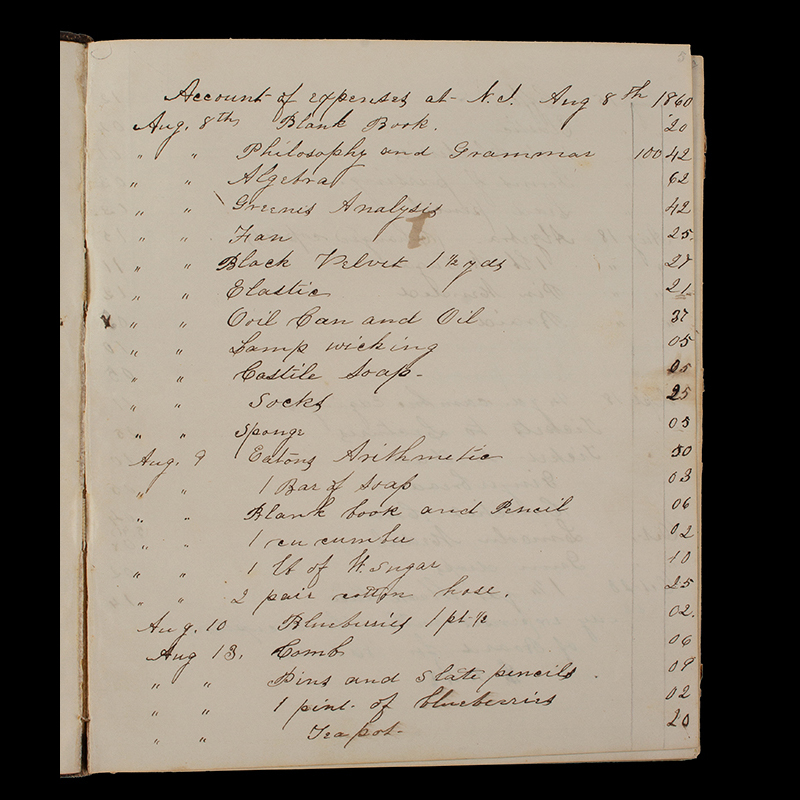 Account of expenses at N.I. Aug 8th 1860
Aug. 8th Blank Book. 20
" " Philosophy and Grammar 100 42
" " Algebra 62
" " Greens Analysis 42
" " Fan 25.
" " Black Velvet 1 ½ yds 27
" " Elastic 21
" " Ooil Can and Oil 37
" " Lamp wicking 05
" " Castile Soap. 05
" " Socks 25
" " Sponge 05
Aug. 9 Eatons Arithmetic 50
" " 1 Bar of Soap 03
" " Blank book and Pencil 06
" " 1 cu cumber 02
" " 1 lb of W. Sugar 10
" " 2 pair cotton hose. 25
Aug. 10 Blueberries 1 pt ½ 02.
Aug 13. Comb 06
" " Pins and Slate pencils. 09
" " 1 pint. of blueberries 02
" " Tea pot. 20